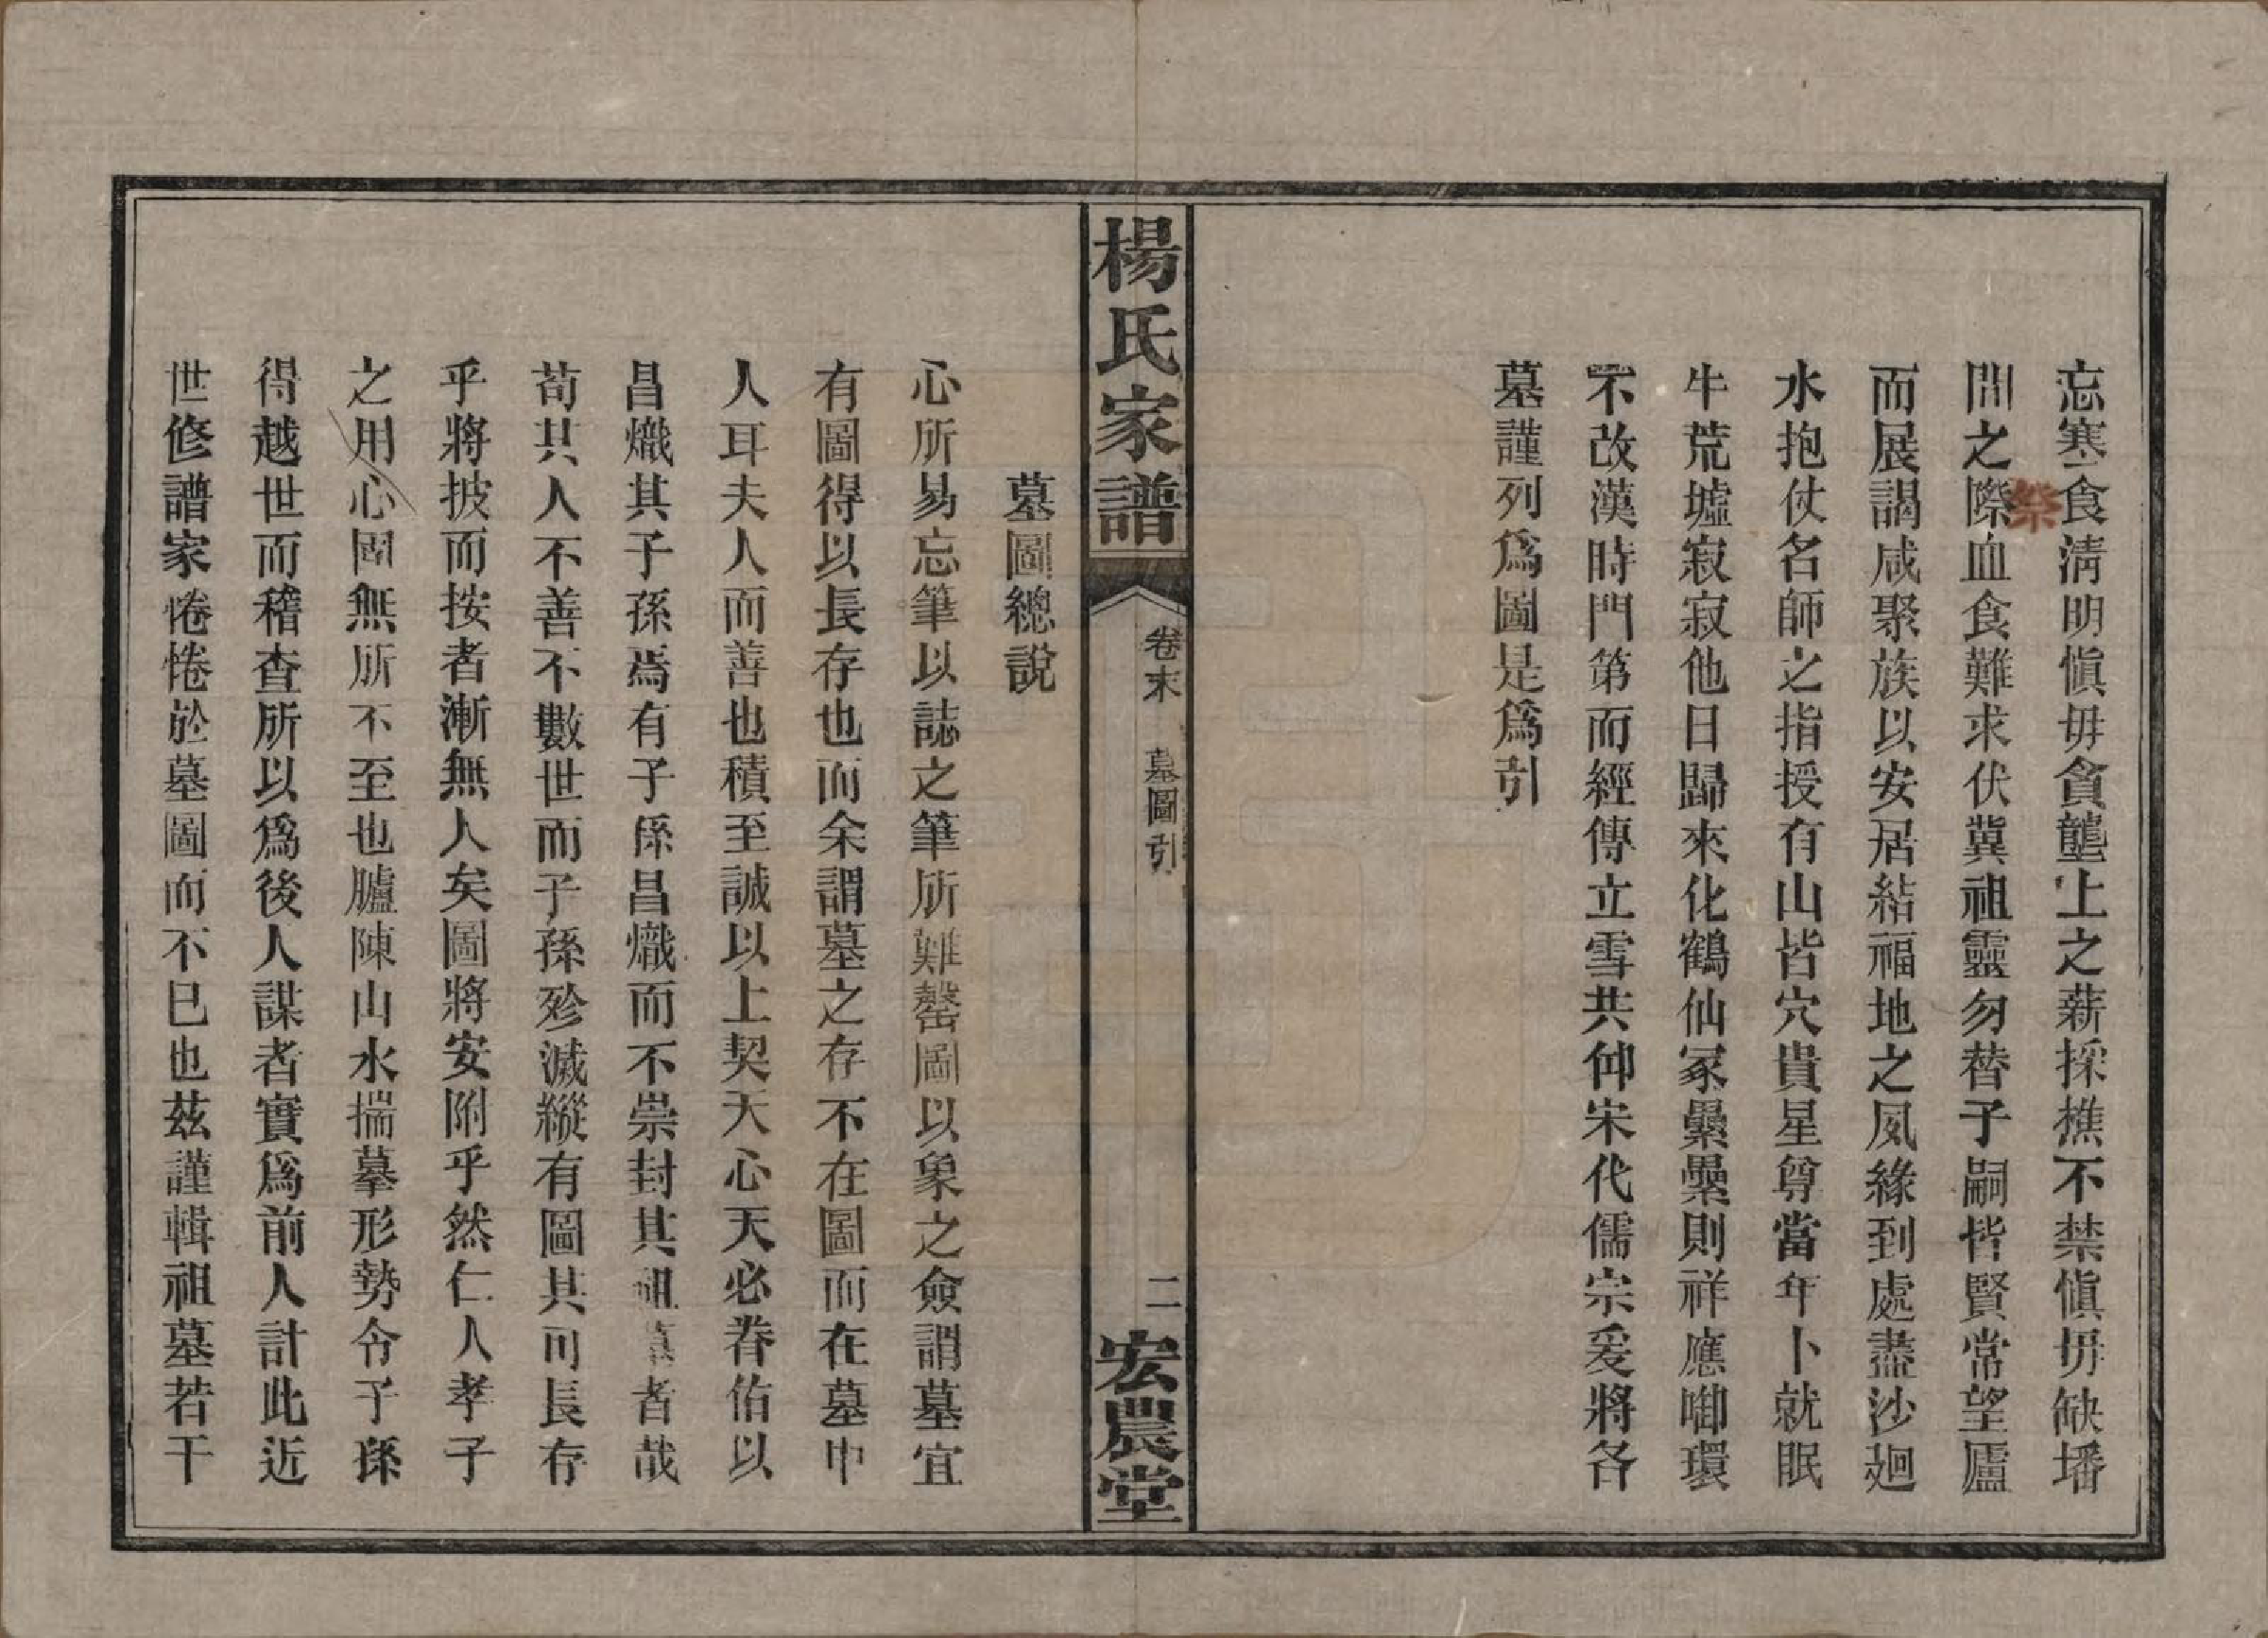 忘寒食淸明愼毋貪壟上之薪採樵不禁愼毋缺墦
間之際血食難求伏冀祖靈勿替子嗣皆賢常望廬
祭
而展謁咸聚族以安居結福地之夙緣到處盡沙廻
水抱仗名師之指授有山皆穴貴星尊當年卜就眠
牛荒墟寂寂他日歸來化鶴仙冢纍纍則祥應啣環
不改漢時門第而經傳立雪共仰宋代儒宗爰將各
墓謹列爲圖是爲引
楊氏家譜
卷末
墓圖引
二
宏農堂
墓圖總說
心所易忘筆以誌之筆所難罄圖以象之僉謂墓宜
有圖得以長存也而余謂墓之存不在圖而在墓中
人耳夫人而善也積至誠以上契天心天必眷佑以
昌熾其子孫焉有子孫昌熾而不崇封其祖墓者哉
苟其人不善不數世而子孫殄滅縱有圖其可長存
乎將披而按者漸無人矣圖將安附乎然仁人孝子
之用心固無所不至也臚陳山水揣摹形勢令子孫
得越世而稽查所以爲後人謀者實爲前人計此近
世修譜家惓惓於墓圖而不已也茲謹輯祖墓若干